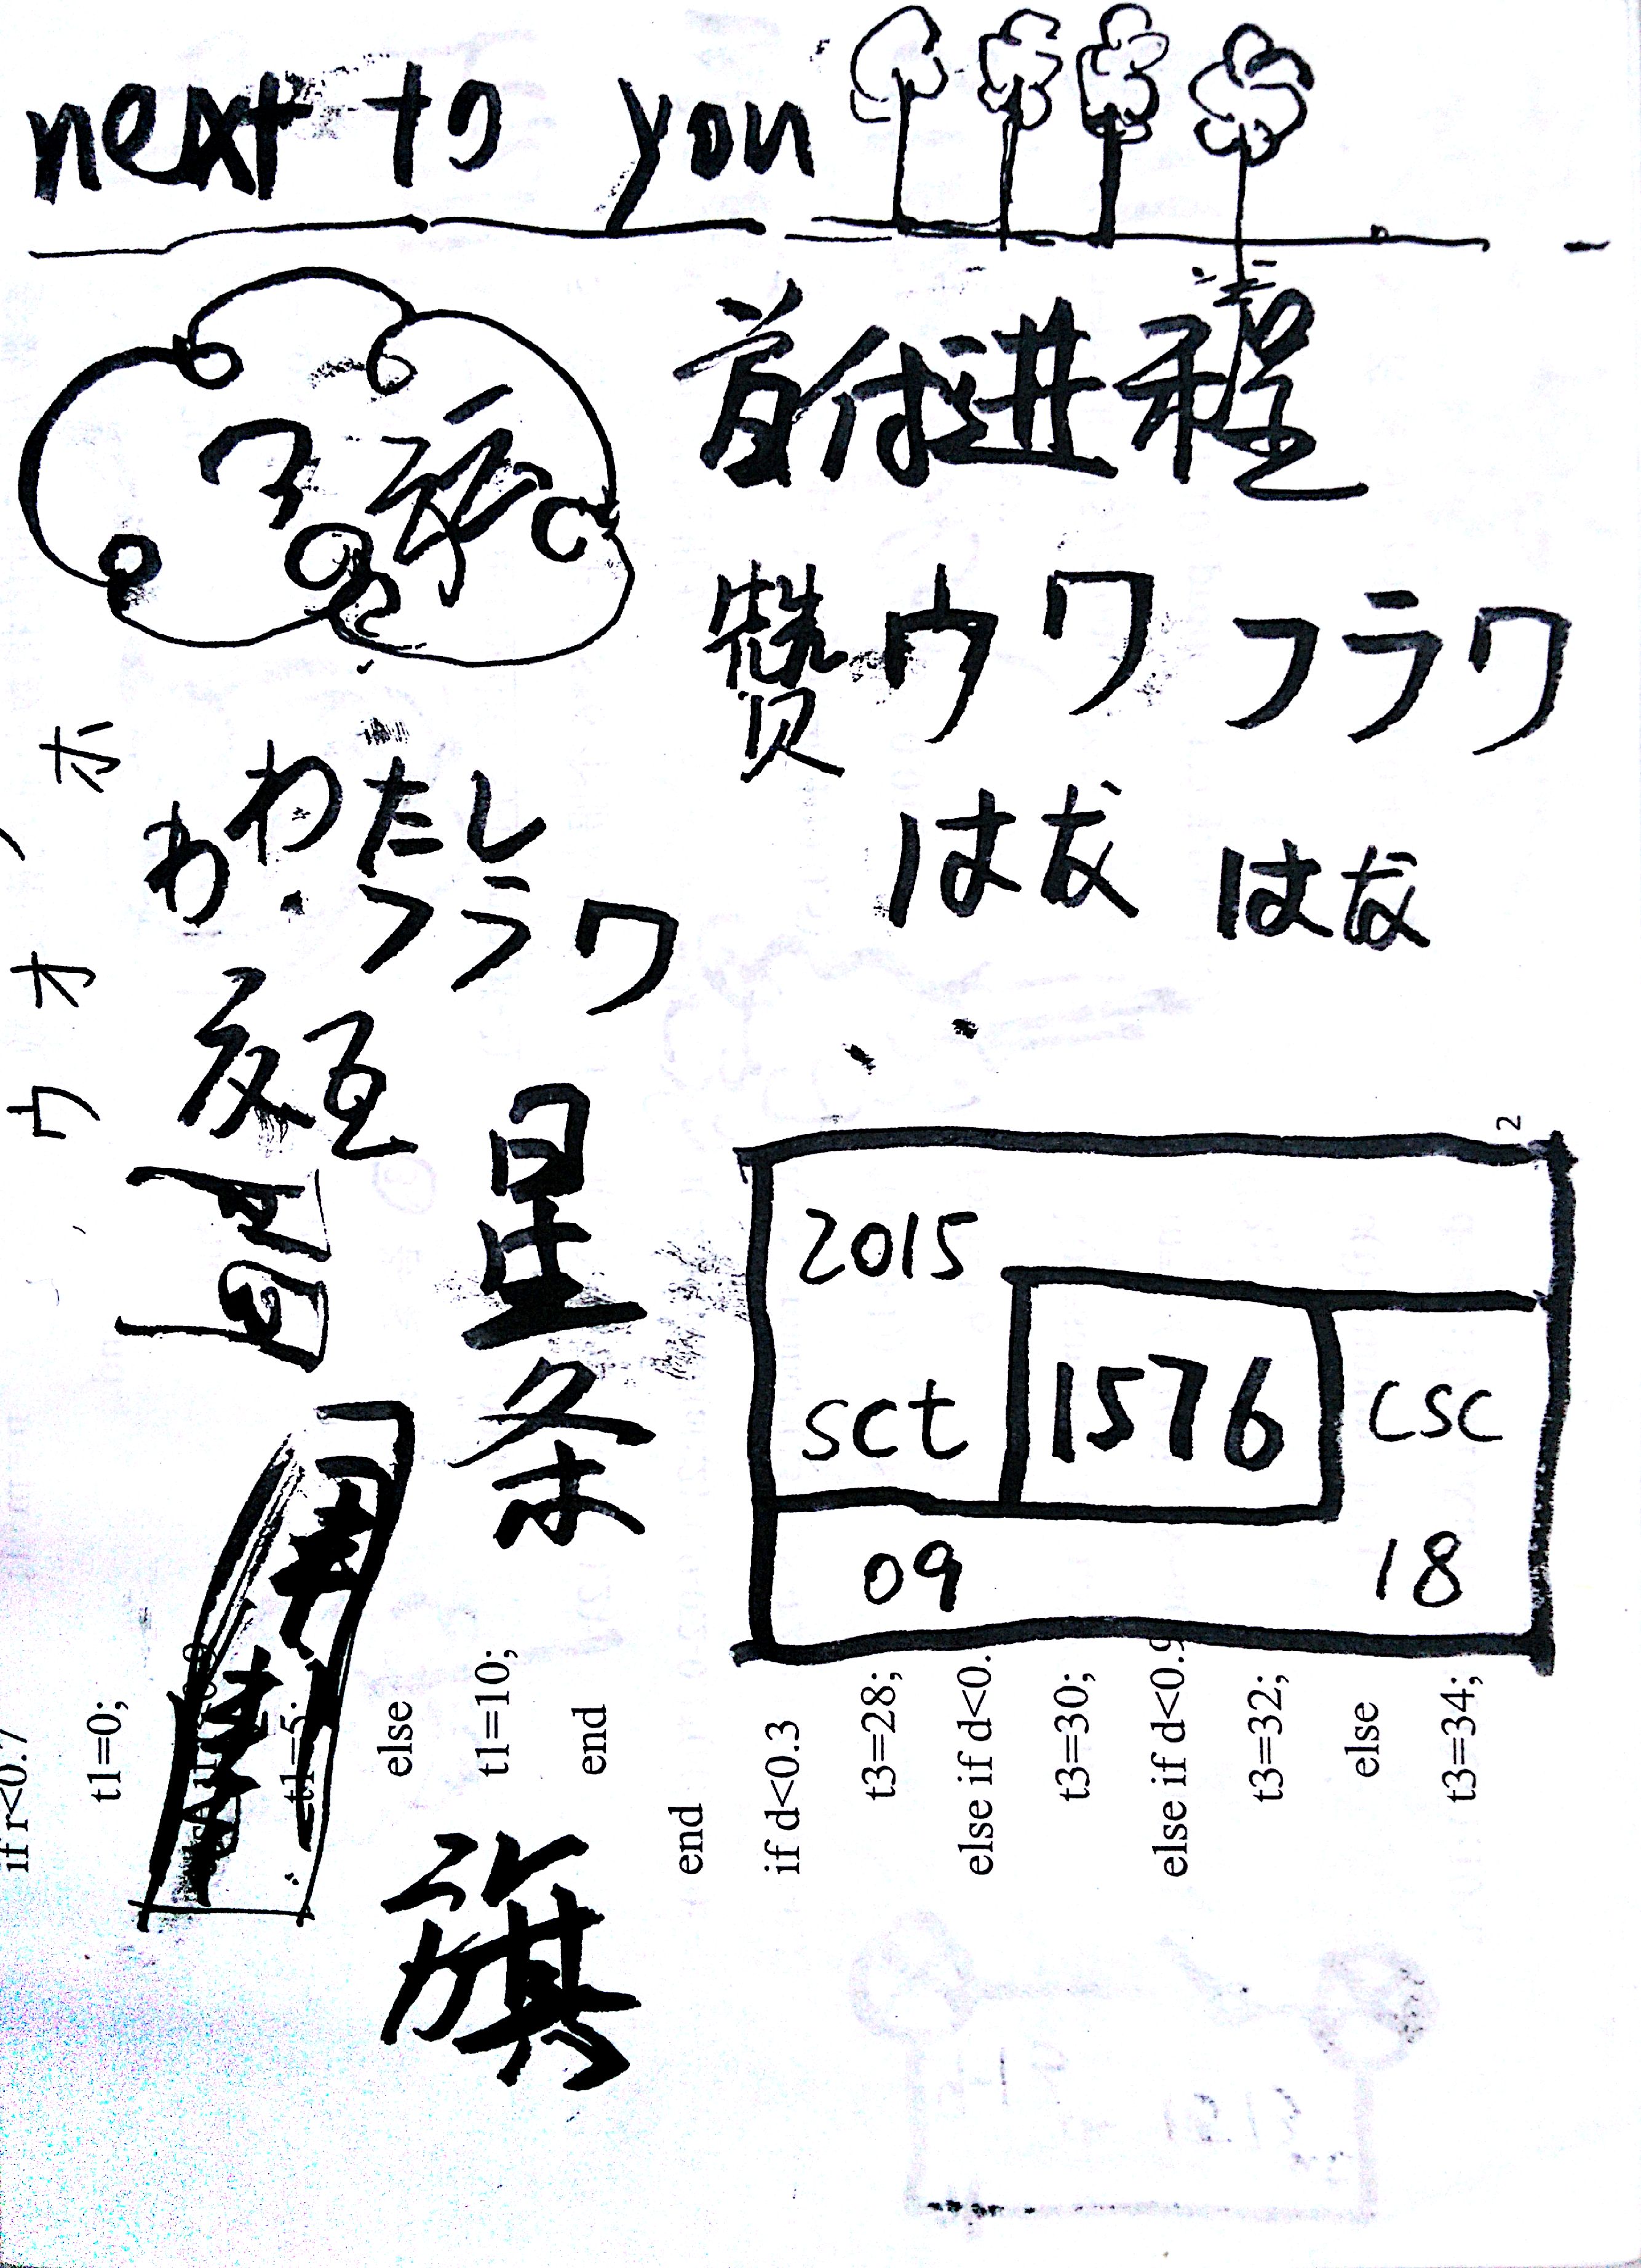 next to you
首付进程
赞 ウワ フラワ
ホ
わたし
わ
はな はな
フラワ
オ
ウ
星
条
旗
2
2015
sct 1576 csc
09 18
if r<0.7
t1=0;
t1=5;
else
t1=10;
end
end
if d<0.3
t3=28;
else if d<0.
t3=30;
else if d<0.9
t3=32;
else
t3=34;